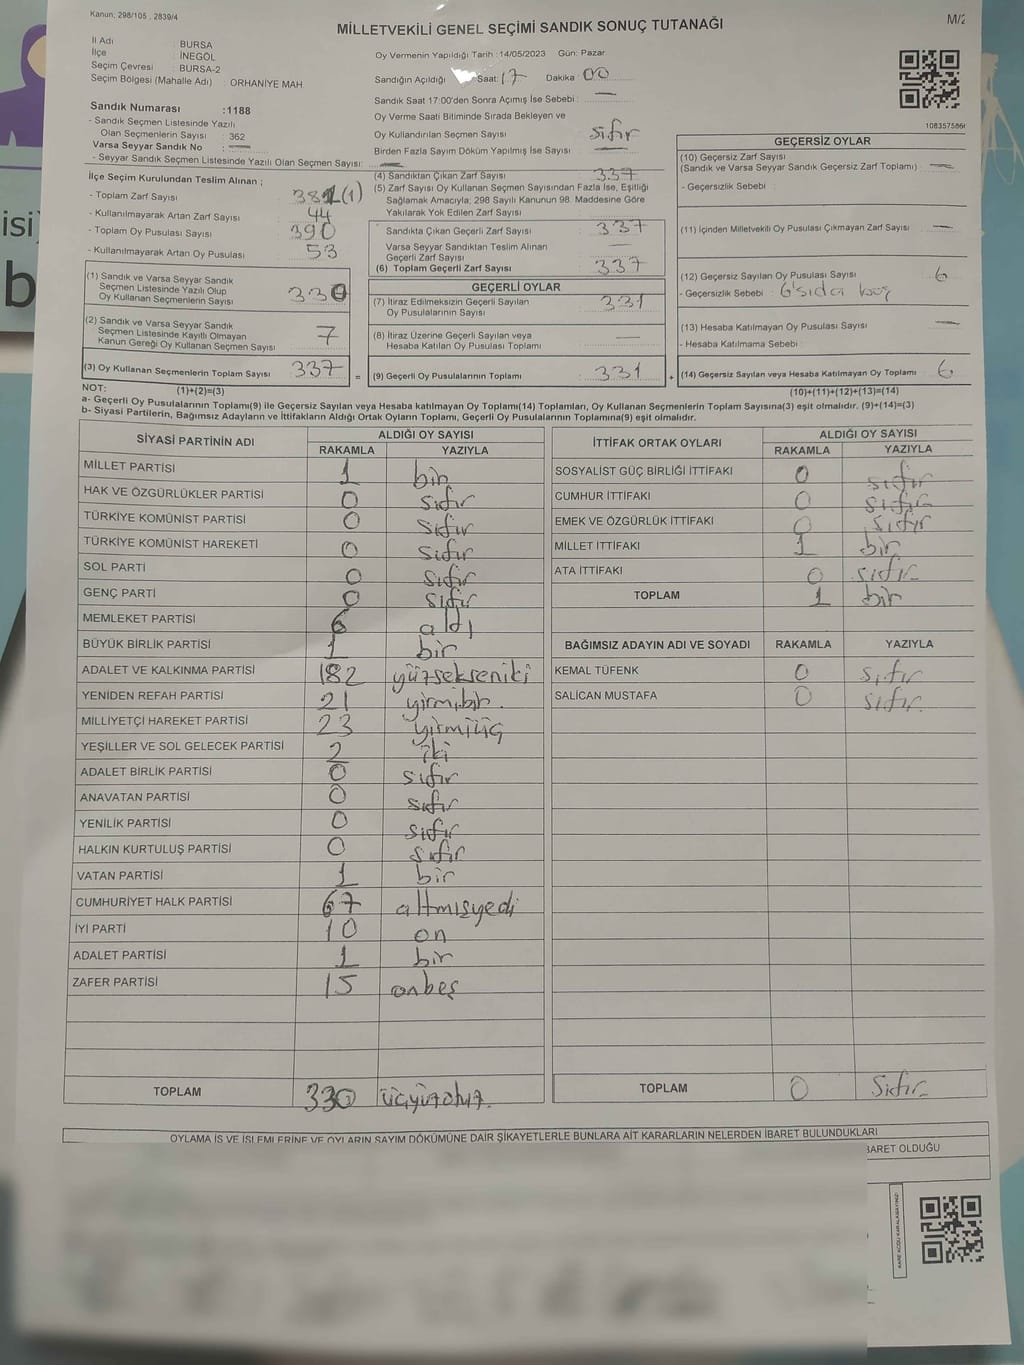 Kanun; 298/105 , 2839/4
M/2
MİLLETVEKİLİ GENEL SEÇİMİ SANDIK SONUÇ TUTANAĞI
İl Adı BURSA
İlçe İNEGÖL
Seçim Çevresi BURSA-2
Seçim Bölgesi (Mahalle Adı) : ORHANİYE MAH.
Sandık Numarası :1188
- Sandık Seçmen Listesinde Yazılı
Olan Seçmenlerin Sayısı : 362
Varsa Seyyar Sandık No : —
- Seyyar Sandık Seçmen Listesinde Yazılı Olan Seçmen Sayısı: —
Oy Vermenin Yapıldığı Tarih :14/05/2023 Gün: Pazar
Sandığın Açıldığı Saat: 17 Dakika 00
Sandık Saat 17:00'den Sonra Açımış İse Sebebi : —
Oy Verme Saati Bitiminde Sırada Bekleyen ve
Oy Kullandırılan Seçmen Sayısı sıfır
Birden Fazla Sayım Döküm Yapılmış İse Sayısı —
1083575866
İlçe Seçim Kurulundan Teslim Alınan ;
- Toplam Zarf Sayısı (1)
- Kullanılmayarak Artan Zarf Sayısı 44
- Toplam Oy Pusulası Sayısı 390
- Kullanılmayarak Artan Oy Pusulası 53
(1) Sandık ve Varsa Seyyar Sandık
Seçmen Listesinde Yazılı Olup
Oy Kullanan Seçmenlerin Sayısı 330
(2) Sandık ve Varsa Seyyar Sandık
Seçmen Listesinde Kayıtlı Olmayan
Kanun Gereği Oy Kullanan Seçmen Sayısı 7
(3) Oy Kullanan Seçmenlerin Toplam Sayısı 337
=
(4) Sandıktan Çıkan Zarf Sayısı 337
(5) Zarf Sayısı Oy Kullanan Seçmen Sayısından Fazla İse, Eşitliği
Sağlamak Amacıyla; 298 Sayılı Kanunun 98. Maddesine Göre
Yakılarak Yok Edilen Zarf Sayısı
Sandıkta Çıkan Geçerli Zarf Sayısı 337
Varsa Seyyar Sandıktan Teslim Alınan
Geçerli Zarf Sayısı —
(6) Toplam Geçerli Zarf Sayısı 337
GEÇERLİ OYLAR
(7) İtiraz Edilmeksizin Geçerli Sayılan
Oy Pusulalarının Sayısı 331
(8) İtiraz Üzerine Geçerli Sayılan veya
Hesaba Katılan Oy Pusulası Toplamı —
(9) Geçerli Oy Pusulalarının Toplamı 331
+
GEÇERSİZ OYLAR
(10) Geçersiz Zarf Sayısı
(Sandık ve Varsa Seyyar Sandık Geçersiz Zarf Toplamı) —
- Geçersizlik Sebebi :
(11) İçinden Milletvekili Oy Pusulası Çıkmayan Zarf Sayısı —
(12) Geçersiz Sayılan Oy Pusulası Sayısı 6
- Geçersizlik Sebebi : 6'sıda boş
(13) Hesaba Katılmayan Oy Pusulası Sayısı —
- Hesaba Katılmama Sebebi :
(14) Geçersiz Sayılan veya Hesaba Katılmayan Oy Toplamı 6
NOT: (1)+(2)=(3) (10)+(11)+(12)+(13)=(14)
a- Geçerli Oy Pusulalarının Toplamı(9) ile Geçersiz Sayılan veya Hesaba katılmayan Oy Toplamı(14) Toplamları, Oy Kullanan Seçmenlerin Toplam Sayısına(3) eşit olmalıdır. (9)+(14)=(3)
b- Siyasi Partilerin, Bağımsız Adayların ve İttifakların Aldığı Ortak Oyların Toplamı, Geçerli Oy Pusulalarının Toplamına(9) eşit olmalıdır.
SİYASİ PARTİNİN ADI ALDIĞI OY SAYISI
RAKAMLA YAZIYLA
MİLLET PARTİSİ 1 bir
HAK VE ÖZGÜRLÜKLER PARTİSİ 0 sıfır
TÜRKİYE KOMÜNİST PARTİSİ 0 sıfır
TÜRKİYE KOMÜNİST HAREKETİ 0 sıfır
SOL PARTİ 0 sıfır
GENÇ PARTİ 0 sıfır
MEMLEKET PARTİSİ 6 altı
BÜYÜK BİRLİK PARTİSİ 1 bir
ADALET VE KALKINMA PARTİSİ 182 yüzsekseniki
YENİDEN REFAH PARTİSİ 21 yirmibir.
MİLLİYETÇİ HAREKET PARTİSİ 23 yirmiüç
YEŞİLLER VE SOL GELECEK PARTİSİ 2 iki
ADALET BİRLİK PARTİSİ 0 sıfır
ANAVATAN PARTİSİ 0 sıfır
YENİLİK PARTİSİ 0 sıfır
HALKIN KURTULUŞ PARTİSİ 0 sıfır
VATAN PARTİSİ 1 bir
CUMHURİYET HALK PARTİSİ 67 altmışyedi
İYİ PARTİ 10 on
ADALET PARTİSİ 1 bir
ZAFER PARTİSİ 15 onbeş
TOPLAM 330 üçyüzotuz.
İTTİFAK ORTAK OYLARI ALDIĞI OY SAYISI
RAKAMLA YAZIYLA
SOSYALİST GÜÇ BİRLİĞİ İTTİFAKI 0 sıfır
CUMHUR İTTİFAKI 0 sıfır
EMEK VE ÖZGÜRLÜK İTTİFAKI 0 sıfır
MİLLET İTTİFAKI 1 bir
ATA İTTİFAKI 0 sıfır
TOPLAM 1 bir
BAĞIMSIZ ADAYIN ADI VE SOYADI RAKAMLA YAZIYLA
KEMAL TÜFENK 0 sıfır
SALİCAN MUSTAFA 0 sıfır.
TOPLAM 0 Sıfır
OYLAMA İŞ VE İŞLEMLERİNE VE OYLARIN SAYIM DÖKÜMÜNE DAİR ŞİKAYETLERLE BUNLARA AİT KARARLARIN NELERDEN İBARET BULUNDUKLARI
BARET OLDUĞU
isi)
b